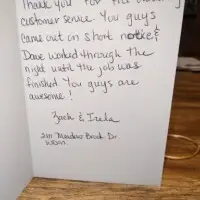 Thank you for the
customer service. You guys
came out in short notice &
Dave worked through the
night until the job was
finished. You guys are
awesome!
Zach &
Meadow Brook Dr.